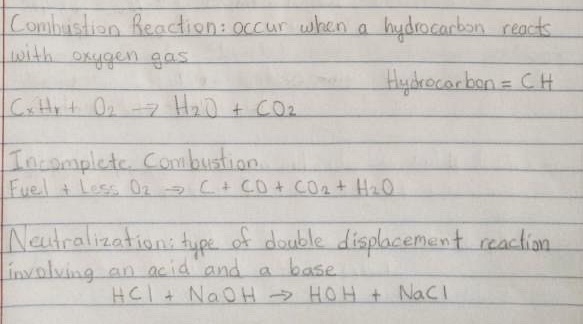 Combustion Reaction: occur when a hydrocarbon reacts
with oxygen gas
Hydrocarbon = CH
CxHy + O2 → H2O + CO2
Incomplete Combustion
Fuel + Less O2 → C + CO + CO2 + H2O
Neutralization: type of double displacement reaction
involving an acid and a base
HCl + NaOH → HOH + NaCl